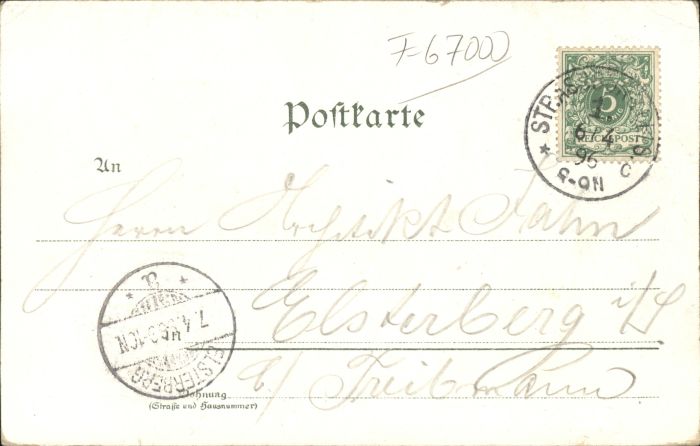 F-67000
Postkarte
5
REICHSPOST
STRASSBURG
1
6/4
96
8-9N
An
Herrn Architekt Jahn
Elsterberg i/S
b/ Treibmann
ELSTERBERG
7.4.96 9-10N
Wohnung
(Straße und Hausnummer)